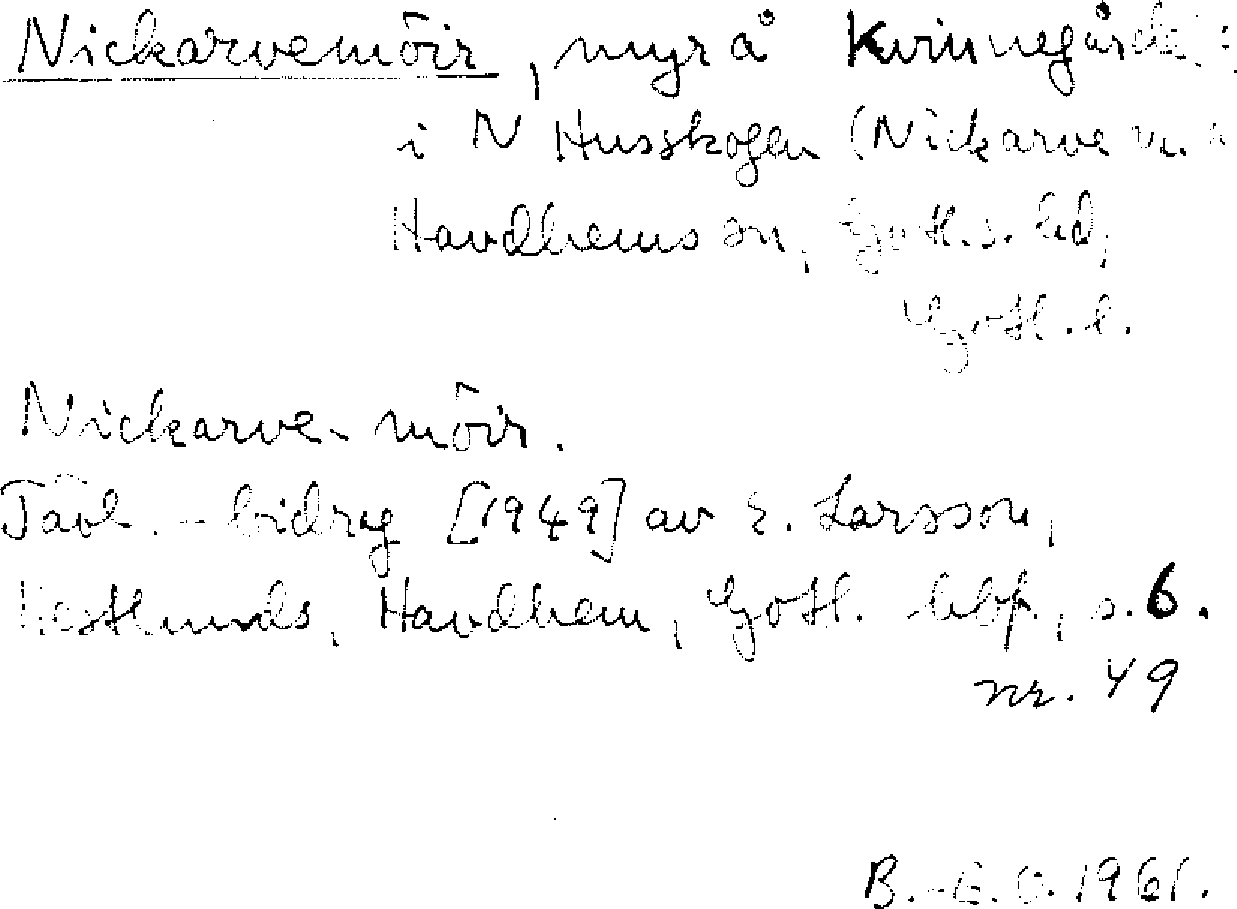 Nickarvemöir, myr å Kvinnegårde
i N Husskogen (Nickarve
Havdhems sn, Gotl. s. hd,
Gotl. l.
Nickarve-möir.
Tävl.-bidrag [1949] av E. Larsson,
Hestlunds, Havdhem, Gotl. hbf., s. 6.
nr. 49
B.-E. O. 1961.